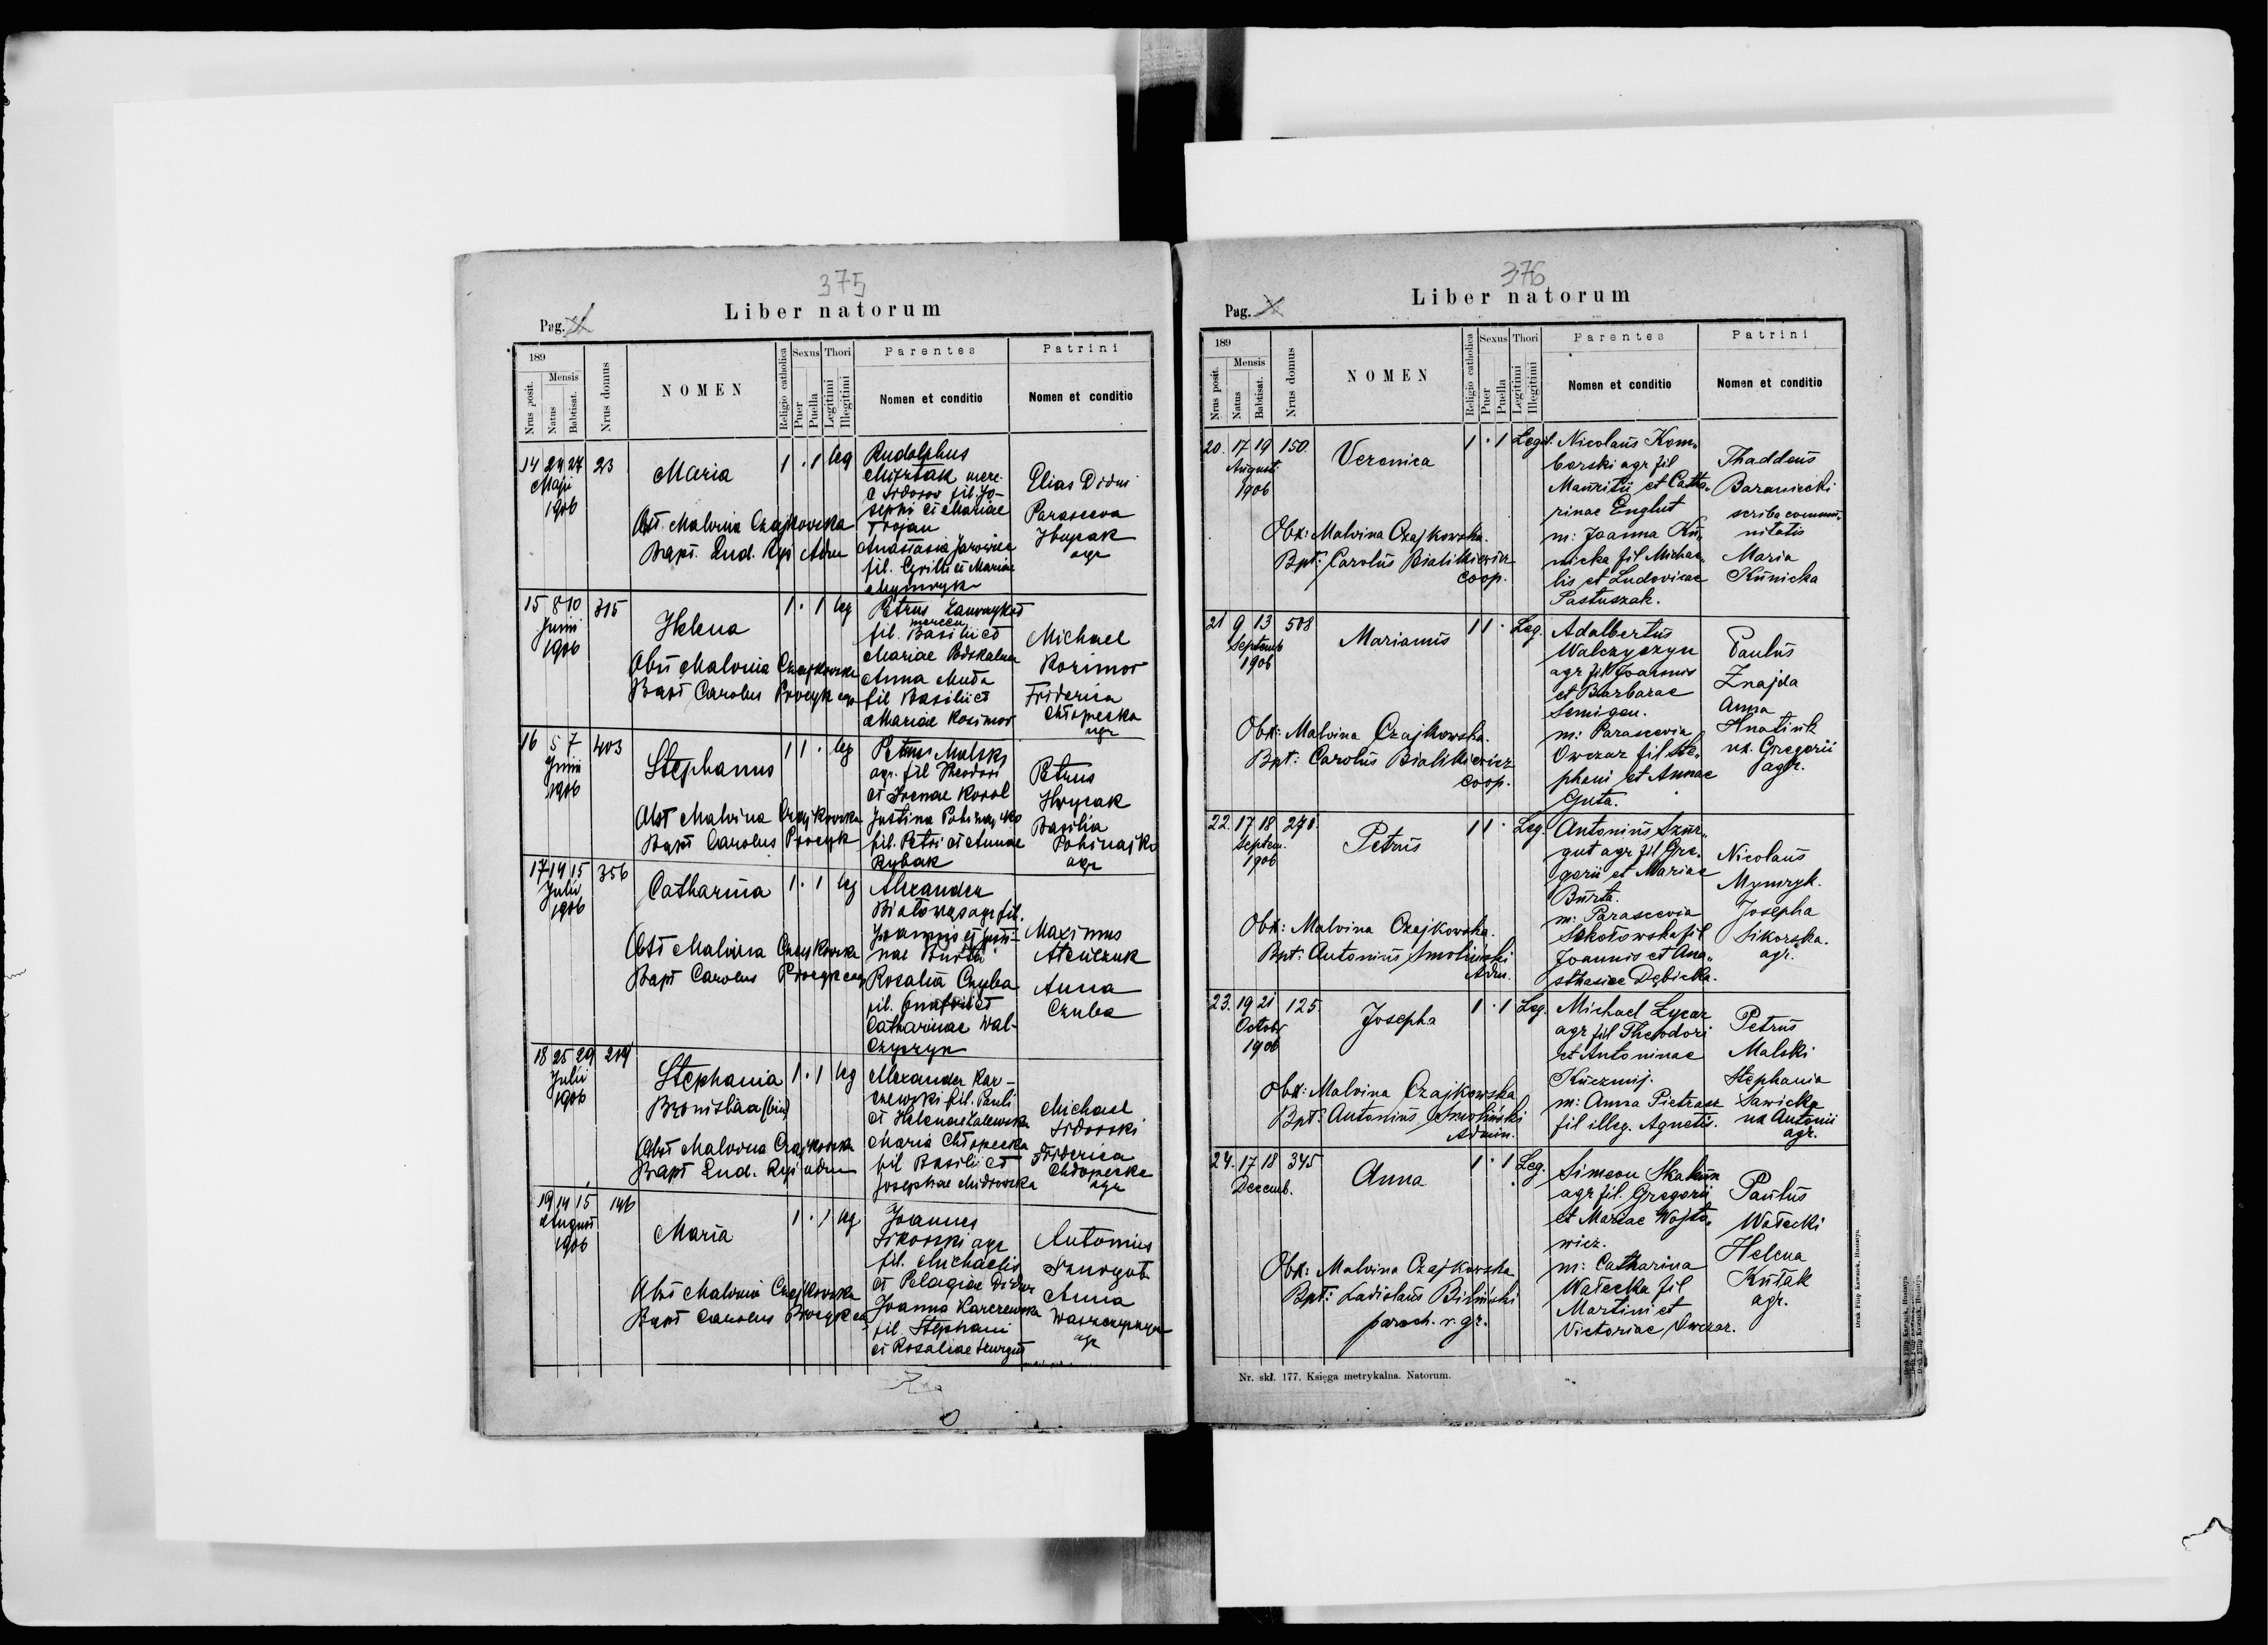 375
Liber natorum
Pag.
189
Nrus posit.
Mensis
Natus
Babtisat.
Nrus domus
NOMEN
Religio catholica
Sexus
Puer
Puella
Thori
Legitimi
Illegitimi
Parentes
Nomen et conditio
Patrini
Nomen et conditio
14 24 27 23
Maji
1906
Maria
1 · 1 leg
Obst. Malvina Czajkowska
Bapt. Lud. Ryś Adm
Rudolphus
fil. Jo-
sephi et Mariae
Trojan
Anastasia
fil. Cyrilli et Mariae
Mymryk
Elias Didui
Parasceva
Hrycak
agr
15 8 10 315
Junii
1906
Helena
1 · 1 leg
Obst Malvina Czajkowska
Bapt Carolus Procyk
Petrus
fil. Basilii et
Mariae Podskalna
Anna Muda
fil Basilii et
Mariae Kozimor
Michael
Kozimor
Friderica
Chłopecka
agr
16 5 7 403
Junii
1906
Stephanus
1 1 · leg
Obst Malvina Czajkowska
Bapt Carolus Procyk
Petrus Malski
agr. fil Theodori
et Irenae Korol
Justina Pohinajko
fil. Petri et Annae
Rybak
Petrus
Hrycak
Basilia
Pohinajko
agr
17 14 15 356
Julii
1906
Catharina
1 · 1 leg
Obst Malvina Czajkowska
Bapt Carolus Procyk
Alexander
Białowąs agr fil.
Joannis et Justi-
nae Burta
Rozalia Czuba
fil. Onufrii et
Catharinae Wal-
czyszyn
Maximus
Anna
Czuba
18 25 29 219
Julii
1906
Stephania
Bronislaa (bin)
1 · 1 leg
Obst Malvina Czajkowska
Bapt Lud. Ryś adm
Alexander Kar-
czewski fil. Pauli
et Helenae Zalewska
Maria Chłopecka
fil Basilii et
Josephae
Michael
Friderica
Chłopecka
agr
19 14 15 146
August
1906
Maria
1 · 1 leg
Obst Malvina Czajkowska
Bapt Carolus Procyk
Joannes
Sikorski agr
fil. Michaelis
et Pelagiae
Joanna Karczewska
fil Stephani
et Rosaliae Szurgut
Antonius
Szurgot
Anna
agr
376
Liber natorum
Pag.
189
Nrus posit.
Mensis
Natus
Babtisat.
Nrus domus
NOMEN
Religio catholica
Sexus
Puer
Puella
Thori
Legitimi
Illegitimi
Parentes
Nomen et conditio
Patrini
Nomen et conditio
20. 17 19 150.
August.
1906
Veronica
1 · 1 Legit.
Obst: Malvina Czajkowska.
Bpt: Carolus Bialikiewicz
coop.
Nicolaus Kom„
borski agr fil
Mauritii et Catha„
rinae Englut
m: Joanna Ku„
nicka fil Michae„
lis et Ludovicae
Pastuszak.
Thaddeus
Baraniecki
scriba commu„
nitatis
Maria
Kunicka
21 9 13 508
Septemb
1906
Marianus
1 1 · Leg.
Obst: Malvina Czajkowska.
Bpt: Carolus Bialikiewicz
coop.
Adalbertus
Walczyszyn
agr fil Joannis
et Barbarae
Semigen.
m: Parascevia
Owczar fil Ste„
phani et Annae
Guta.
Paulus
Znajda
Anna
Hnatiuk
ux. Gregorii
agr.
22. 17 18 270.
Septem.
1906
Petrus
1 1 · Leg.
Obst: Malvina Czajkowska.
Bpt: Antonius Smoliński
Adm.
Antonius Szur„
gut agr fil Gre„
gorii et Mariae
Burta.
m: Parascevia
Sokołowska fil
Joannis et Ana„
sthasiae Dębicka.
Nicolaus
Mymryk.
Josepha
Sikorska.
agr.
23. 19 21 125.
Octobr
1906
Josepha
1 · 1 Leg.
Obst: Malvina Czajkowska
Bpt: Antonius Smoliński
Admin.
Michael Łycar
agr fil Theodori
et Antoninae
Kuczmij.
m: Anna Pietrasz
fil illeg. Agnetis.
Petrus
Malski
Stephania
Sawicka
ux Antonii
agr.
24. 17 18 345
Decemb.
Anna
1 · 1 Leg.
Obst: Malvina Czajkowska
Bpt: Ladislaus Biliński
paroch. r. gr.
Simeon Skakun
agr fil. Gregorii
et Mariae Wojto„
wicz.
m: Catharina
Wałecka fil
Martini et
Victoriae Owczar.
Paulus
Wałecki
Helena
Kułak
agr.
Nr. skł. 177. Księga metrykalna. Natorum.
Druk Filip Kawasik, Husiatyn